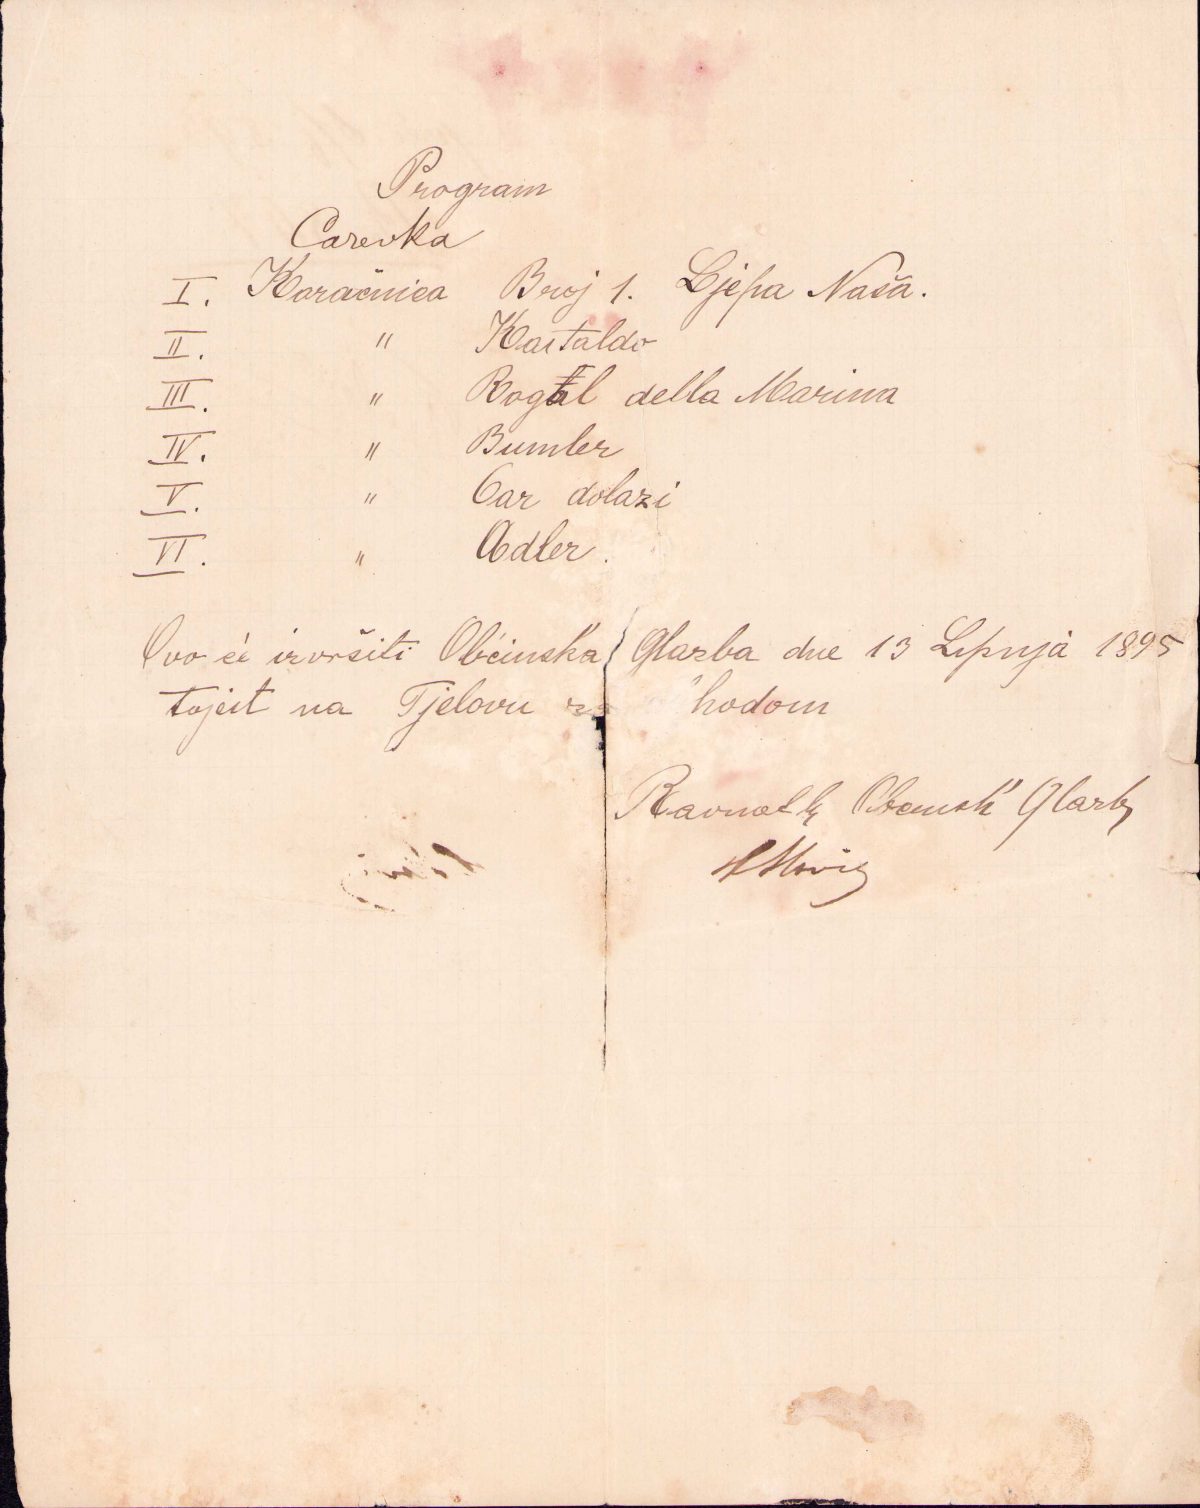 Program
Carevka
I. Koračnica Broj 1. Ljepa Naša.
II. " Kastaldo
III. " della Marina
IV. " Bumler
V. " Car dolazi
VI. " Adler.
Ovo će izvršiti Občinska Glazba dne 13 Lipnja 1895
tojest na Tjelovu hodom
Glazb